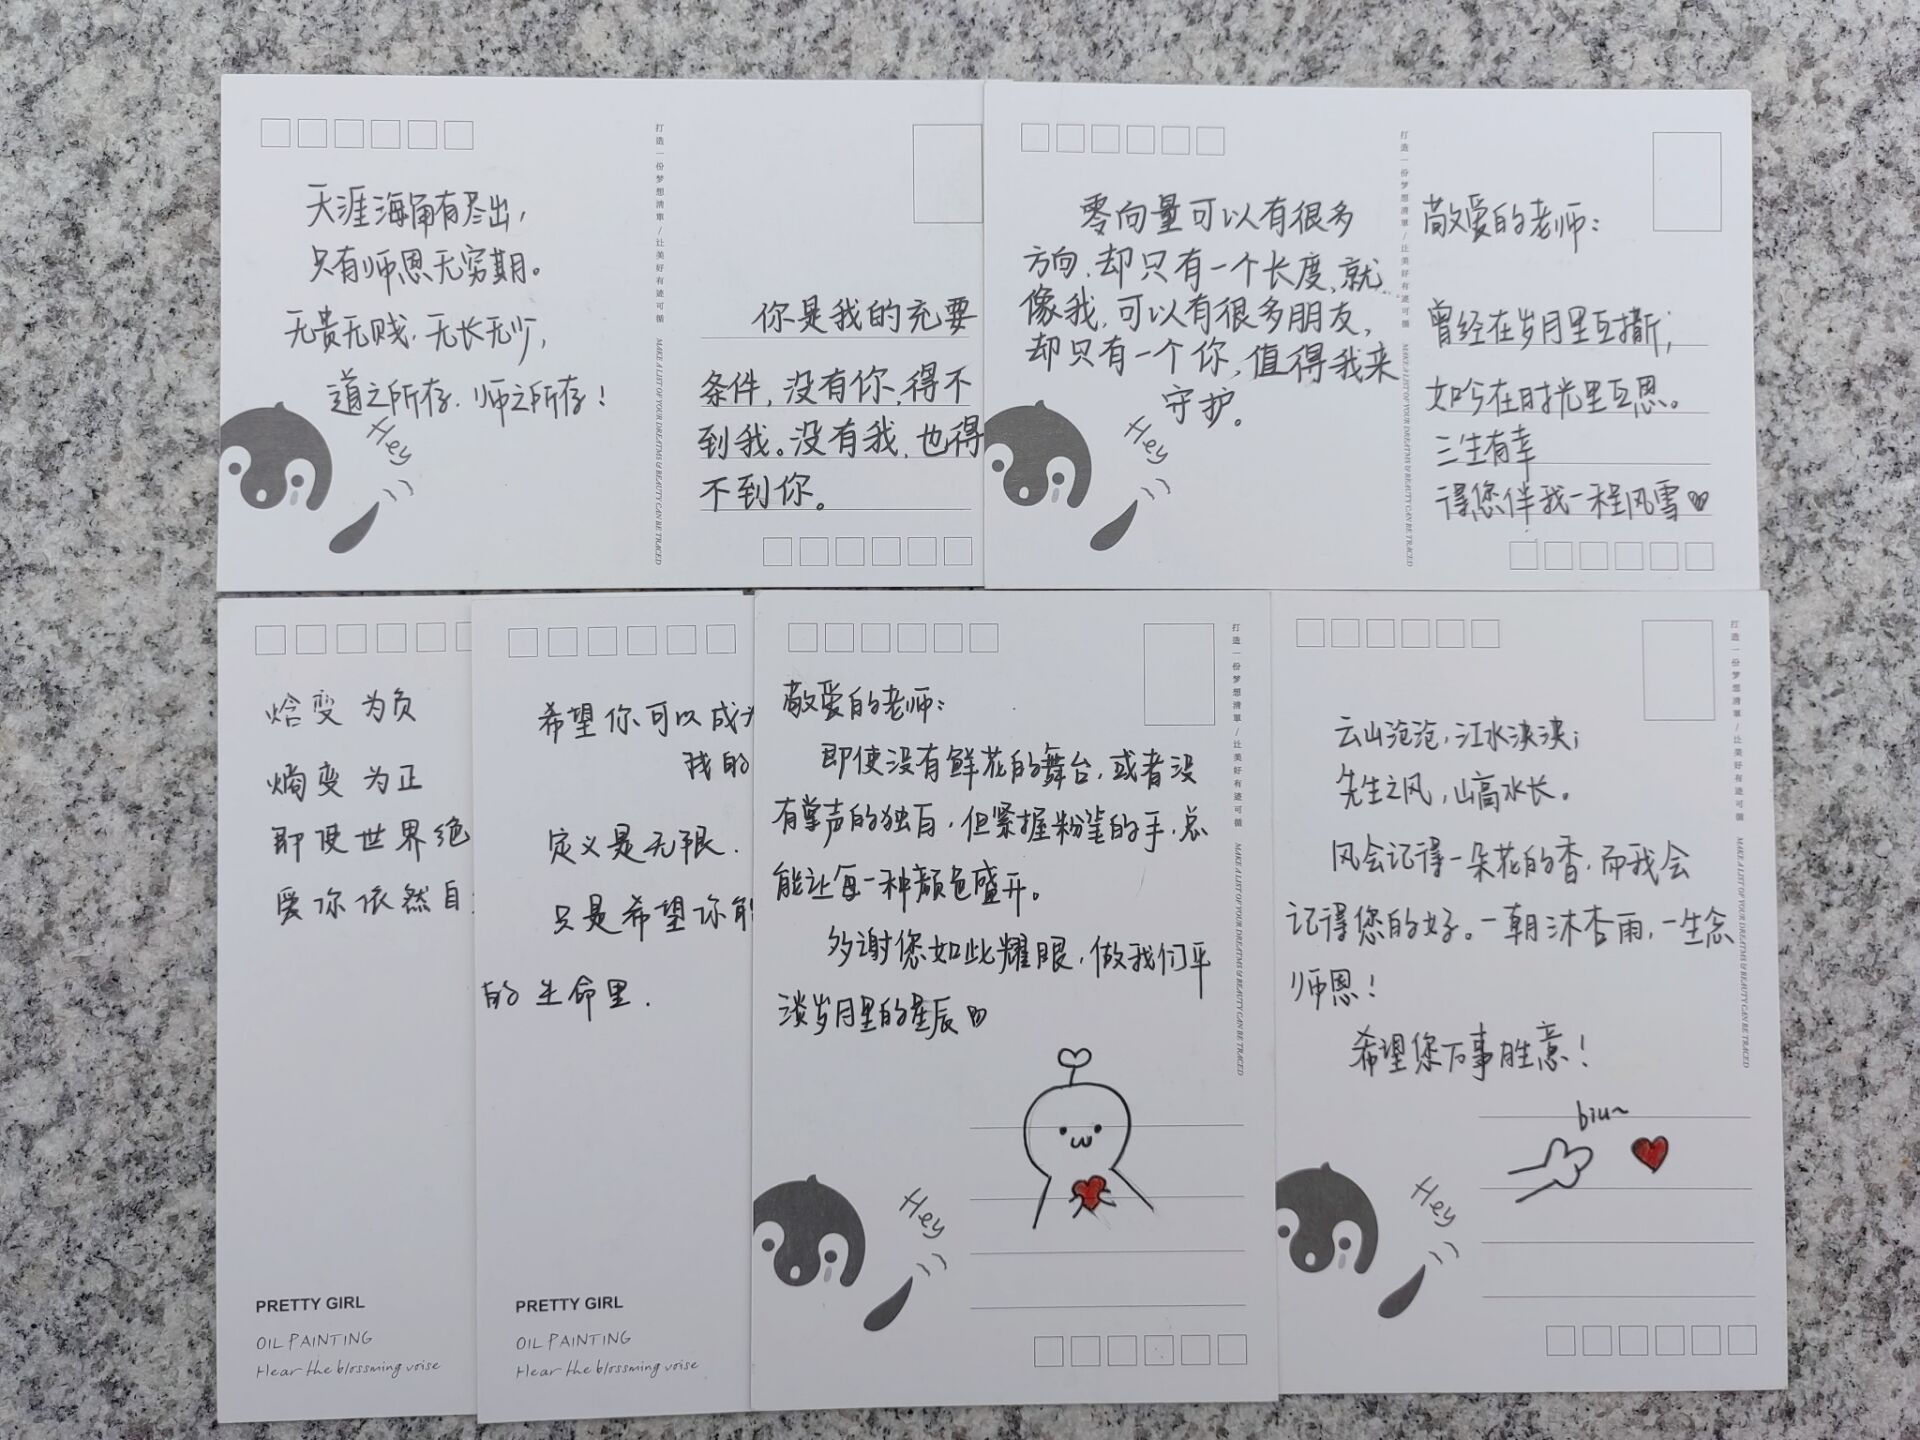 打造一份梦想清单/让美好有迹可循 MAKE A LIST OF YOUR DREATMS & BEAUTY CAN BE TRACED
天涯海角有尽出,
只有师恩无穷期。
无贵无贱,无长无少,
道之所存,师之所存!
Hey
你是我的充要
条件,没有你,得不
到我。没有我,也得
不到你。
打造一份梦想清单/让美好有迹可循 MAKE A LIST OF YOUR DREATMS & BEAUTY CAN BE TRACED
零向量可以有很多
方向,却只有一个长度,就
像我,可以有很多朋友,
却只有一个你,值得我来
守护。
Hey
敬爱的老师:
曾经在岁月里互撕;
如今在时光里互恩。
三生有幸
得您伴我一程风雪
焓变 为负
熵变 为正
即使世界绝
爱你依然自
PRETTY GIRL
OIL PAINTING
Hear the blossming voise
希望你可以成为
我的
定义是无限.
只是希望你能
的生命里.
PRETTY GIRL
OIL PAINTING
Hear the blossming voise
打造一份梦想清单/让美好有迹可循 MAKE A LIST OF YOUR DREATMS & BEAUTY CAN BE TRACED
敬爱的老师:
即使没有鲜花的舞台,或者没
有掌声的独白,但紧握粉笔的手,总
能让每一种颜色盛开。
多谢您如此耀眼,做我们平
淡岁月里的星辰
Hey
打造一份梦想清单/让美好有迹可循 MAKE A LIST OF YOUR DREATMS & BEAUTY CAN BE TRACED
云山沧沧,江水泱泱;
先生之风,山高水长。
风会记得一朵花的香,而我会
记得您的好。一朝沐杏雨,一生念
师恩!
希望您万事胜意!
biu~
Hey